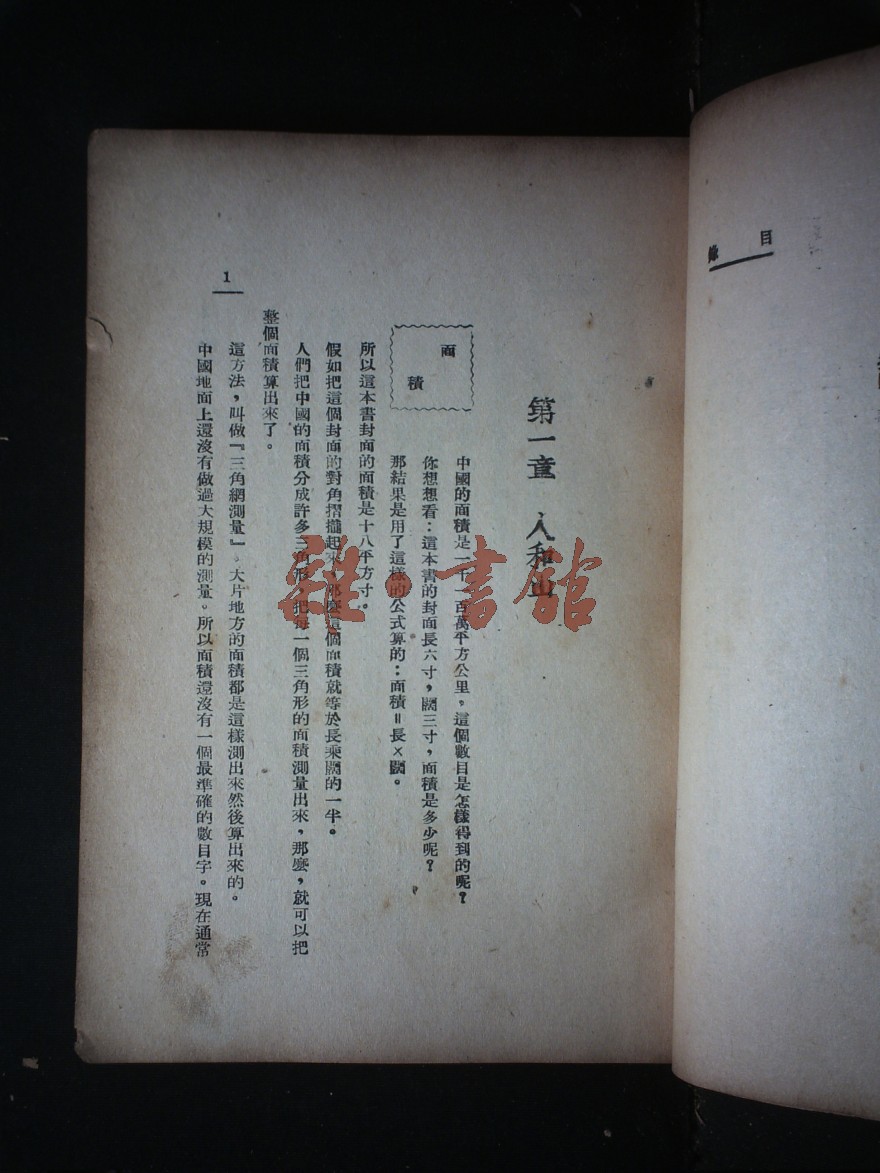 目錄
第一章 人和山
面積
中國的面積是一千一百萬平方公里，這個數目是怎樣得到的呢？
你想想看：這本書的封面長六寸，闊三寸，面積是多少呢？
那結果是用了這樣的公式算的：面積＝長×闊。
所以這本書封面的面積是十八平方寸。
假如把這個封面的對角摺攏起來，那麼這個面積就等於長乘闊的一半。
人們把中國的面積分成許多三角形，把每一個三角形的面積測量出來，那麼，就可以把
整個面積算出來了。
這方法，叫做『三角網測量』。大片地方的面積都是這樣測出來然後算出來的。
中國地面上還沒有做過大規模的測量。所以面積還沒有一個最準確的數目字。現在通常
1
雜·書館